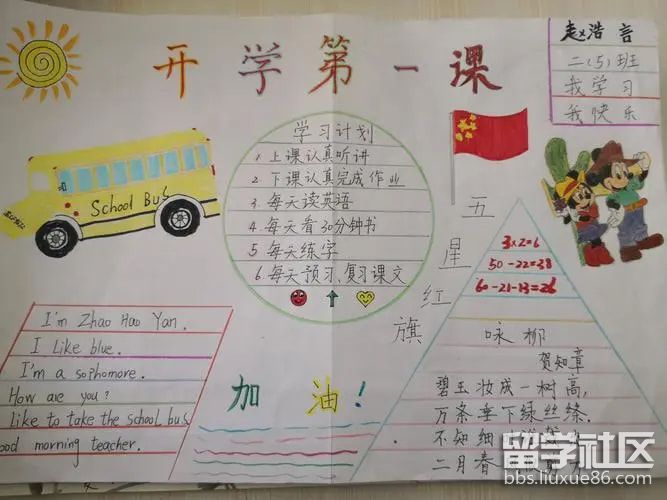 开学第一课
赵浩言
二(5)班
我学习
我快乐
School Bus
学习计划
1.上课认真听讲
2.下课认真完成作业
3.每天读英语
4.每天看30分钟书
5.每天练字
6.每天预习、复习课文
五星红旗
3×2=6
50-22=28
60-21-13=26
咏柳
贺知章
碧玉妆成一树高,
万条垂下绿丝绦.
不知细
二月春
I'm Zhao Hao Yan.
I Like blue.
I'm a sophomore.
How are you?
Like to take the school bus
ood morning teacher.
加油!
留学社区
bbs.liuxue86.com